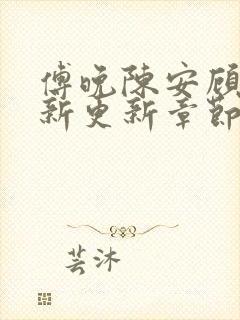 傅晚陈安顾
新更新章節
芸沐